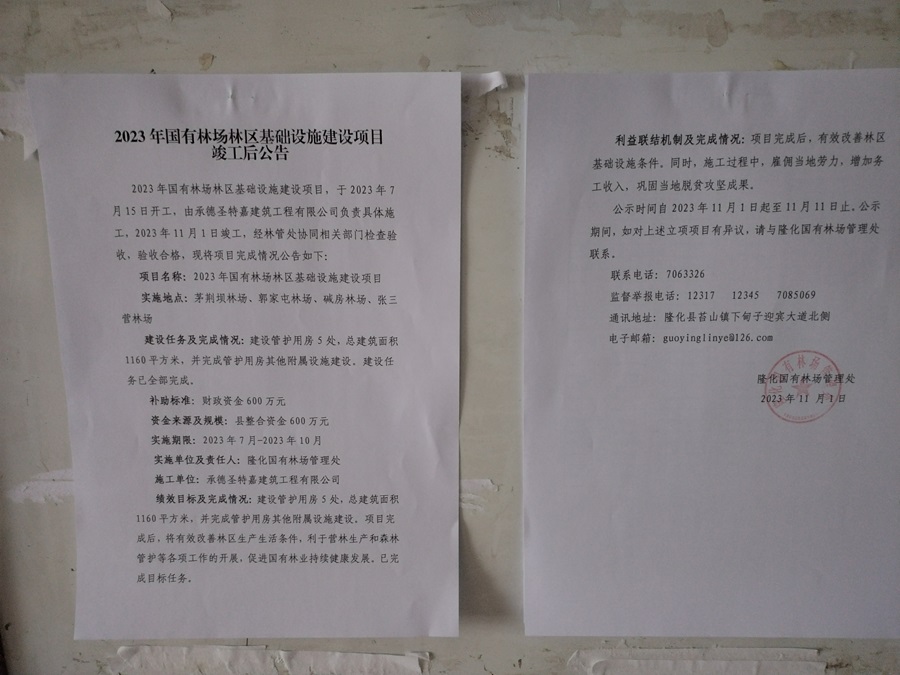 2023 年国有林场林区基础设施建设项目
竣工后公告
2023 年国有林场林区基础设施建设项目，于 2023 年 7
月 15 日开工，由承德圣特嘉建筑工程有限公司负责具体施
工，2023 年 11 月 1 日竣工，经林管处协同相关部门检查验
收，验收合格，现将项目完成情况公告如下：
项目名称：2023 年国有林场林区基础设施建设项目
实施地点：茅荆坝林场、郭家屯林场、碱房林场、张三
营林场
建设任务及完成情况：建设管护用房 5 处，总建筑面积
1160 平方米，并完成管护用房其他附属设施建设。建设任
务已全部完成。
补助标准：财政资金 600 万元
资金来源及规模：县整合资金 600 万元
实施期限：2023 年 7 月-2023 年 10 月
实施单位及责任人：隆化国有林场管理处
施工单位：承德圣特嘉建筑工程有限公司
绩效目标及完成情况：建设管护用房 5 处，总建筑面积
1160 平方米，并完成管护用房其他附属设施建设。项目完
成后，将有效改善林区生产生活条件，利于营林生产和森林
管护等各项工作的开展，促进国有林业持续健康发展。已完
成目标任务。
利益联结机制及完成情况：项目完成后，有效改善林区
基础设施条件。同时，施工过程中，雇佣当地劳力，增加务
工收入，巩固当地脱贫攻坚成果。
公示时间自 2023 年 11 月 1 日起至 11 月 11 日止。公示
期间，如对上述立项项目有异议，请与隆化国有林场管理处
联系。
联系电话：7063326
监督举报电话：12317 12345 7085069
通讯地址：隆化县苔山镇下甸子迎宾大道北侧
电子邮箱：guoyinglinye@126.com
隆化国有林场管理处
2023 年 11 月 1 日